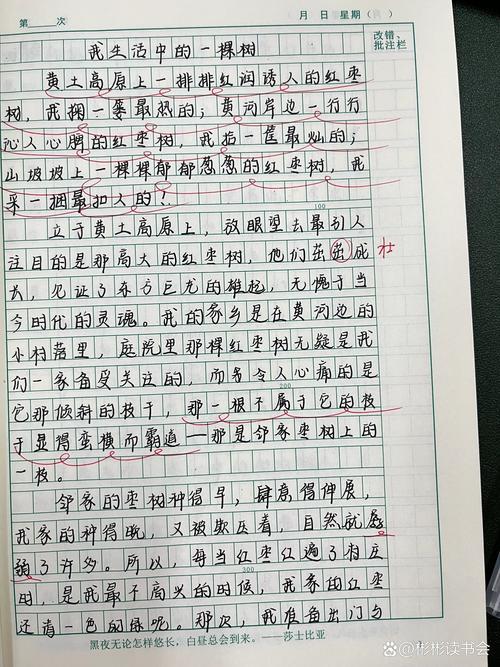 第 次 月 日 星期( )
改错、
批注栏
我生活中的一棵树
黄土高原上一排排红润诱人的红枣
树,我掬一篓最热的;黄河岸边一行行
沁人心脾的红枣树,我拾一筐最灿的;
山坡坡上一棵棵郁郁葱葱的红枣树,我
采一捆最扣人的!
100
立于黄土高原上,放眼望去最引人
注目的是那高大的红枣树,他们茁茁成
壮
长,见证了东方巨龙的雄起,无愧于当
今时代的灵魂。我的家乡是在黄河边的
小村落里,庭院里那棵红枣树无疑是我
们一家备受关注的,而令人心痛的是
200
它那倾斜的枝干,那一根不属于它的枝
干显得蛮横而霸道——那是邻家枣树上的
一枝。
邻家的枣树种得早,肆意得伸展,
我家的种得晚,又被欺压着,自然就孱
弱了许多。所以,每当红枣红遍了村庄
300
时,是我最不高兴的时候,我家的红枣
还有一色的绿呢。那次,我准备出门与
黑夜无论怎样悠长,白昼总会到来。——莎士比亚
@彬彬读书会